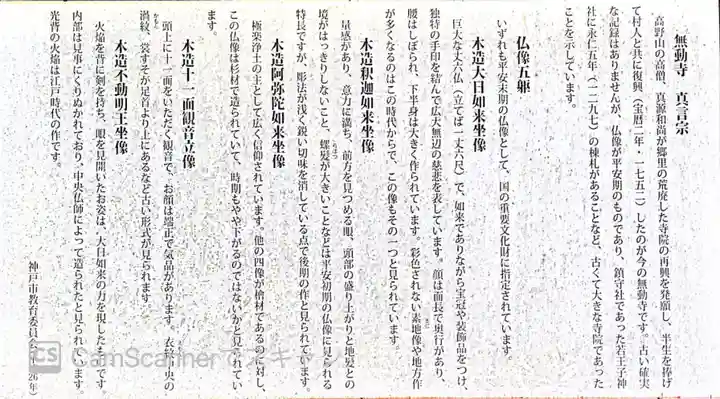 無動寺　真言宗
高野山の高僧、真源和尚が郷里の荒廃した寺院の再興を発願し、半生を捧げ
て村人と共に復興（宝暦二年・一七五二）したのが今の無動寺です。古い確実
な記録はありませんが、仏像が平安期のものであり、鎮守社であった若王子神
社に永仁五年（一二九七）の棟札があることなど、古くて大きな寺院であった
ことを示しています。
仏像五躯
いずれも平安末期の仏像として、国の重要文化財に指定されています。
木造大日如来坐像
巨大な丈六仏（立てば一丈六尺）で、如来でありながら宝冠や装飾品をつけ、
独特の手印を結んで広大無辺の慈悲を表しています。顔は面長で奥行があり、
腰はしぼられ、下半身は大きく作られています。彩色されない素地像や地方作
が多くなるのはこの時代からで、この像もその一つと見られています。
木造釈迦如来坐像
量感があり、意力に満ち、前方を見つめる眼、頭部の盛り上がりと地髪との
境がはっきりしないこと、螺髪が大きいことなどは平安初期の仏像に見られる
特長ですが、彫法が浅く鋭い切味を消している点で後期の作と見られています。
木造阿弥陀如来坐像
極楽浄土の主として広く信仰されています。他の四像が檜材であるのに対し、
この仏像は杉材で造られていて、時期もやや下がるのではないかと見られてい
ます。
木造十一面観音立像
頭上に十一面をいただく観音で、お顔は端正で気品があります。衣紋中央の
渦紋、裳すそが足首より上にあるなど古い形式が見られます。
木造不動明王坐像
火焔を背に剣を持ち、眼を見開いたお姿は、大日如来の力を現したものです。
内部は見事にくりぬかれており、中央仏師によって造られたと見られています。
光背の火焔は江戸時代の作です。
神戸市教育委員会
26年）
CS CamScannerでスキャン